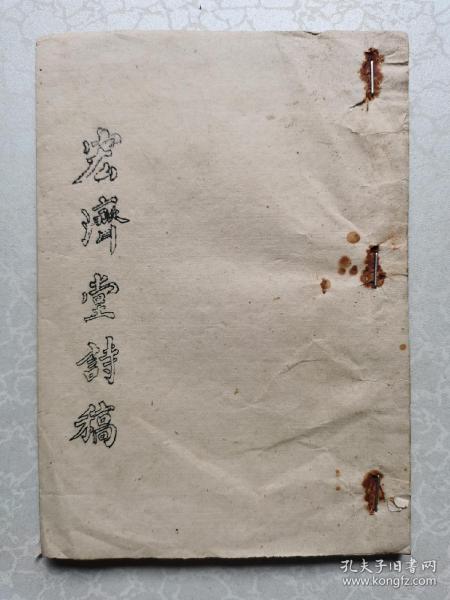 宏濟堂詩稿
孔夫子旧书网
www.kongfz.com